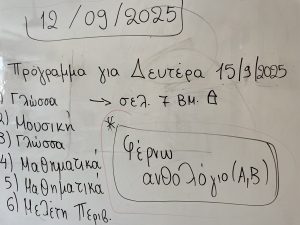 12/09/2025
Πρόγραμμα για Δευτέρα 15/9/2025
1) Γλώσσα → σελ. 7 ΒΜ.
2) Μουσική
3) Γλώσσα
4) Μαθηματικά
5) Μαθηματικά
6) Μελέτη Περιβ.
* Φέρνω
ανθολόγιο (Α,Β)